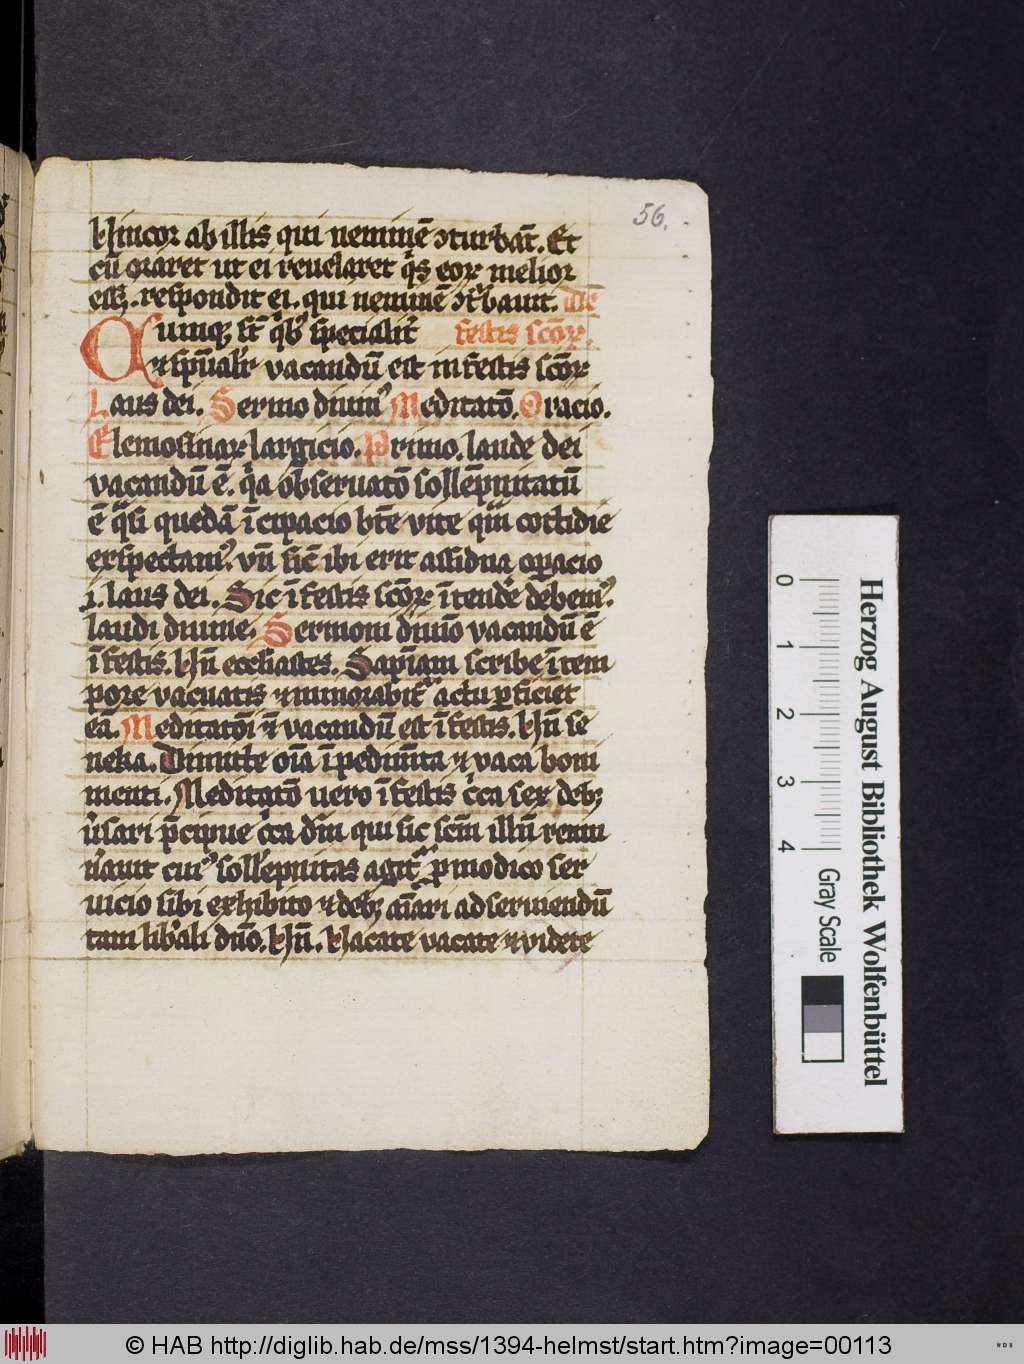 56.
hincor ab illis qui neminē ꝯturbāt. Et
cū oraret ut ei reuelaret qͥs eoꝝ melior
eēt. respondit ei. qui neminē ꝯtͬbauit. De
Quinqꝫ sūt qͥbꝰ spēcialiṫ festis scōꝝ.
⁊ spūalit̄ vacandū est in festis scōꝝ
Laus dei. Sermo diuinꝰ Meditatō. Oracio.
Elemosinaꝝ largicio. Primo. laude dei
vacandū ē. qͥa obseruatō sollēpnitatū
ē qͣsi quedā ī cipacio btē vite quā cottidie
exspectamꝰ. vn̄ sic̄ ibi erit assidua oꝑacio
.i. laus dei. Sic ī festis scōꝝ ītendē debemꝰ.
laudi diuine. Sermoni diuīo vacandū ē
ī festis. vn̄ ecclīastes. Sapīam scribe ī tem
pore vacuatis ⁊ minorabitᷣ actu ꝑficiet
eā. Meditatōi ⁊̄ vacandū est ī festis. vn̄ se
neka. Dimitte oīa īpedimīta ⁊ vaca boni
menti. Meditatō uero ī festis cͥca sex debꝫ
ūsari p̄cipue cͥca dm̄ qui sic scm̄ illū remu
nāuit cuiꝰ sollēpnitas agitᷣ ꝓ modico ser
uicio sibi exhibito ⁊ debꝫ aīari ad seruiendū
tam libāli dn̄o. vn̄. Vacate vacate ⁊ videte
Herzog August Bibliothek Wolfenbüttel
0 1 2 3 4
Gray Scale
© HAB http://diglib.hab.de/mss/1394-helmst/start.htm?image=00113